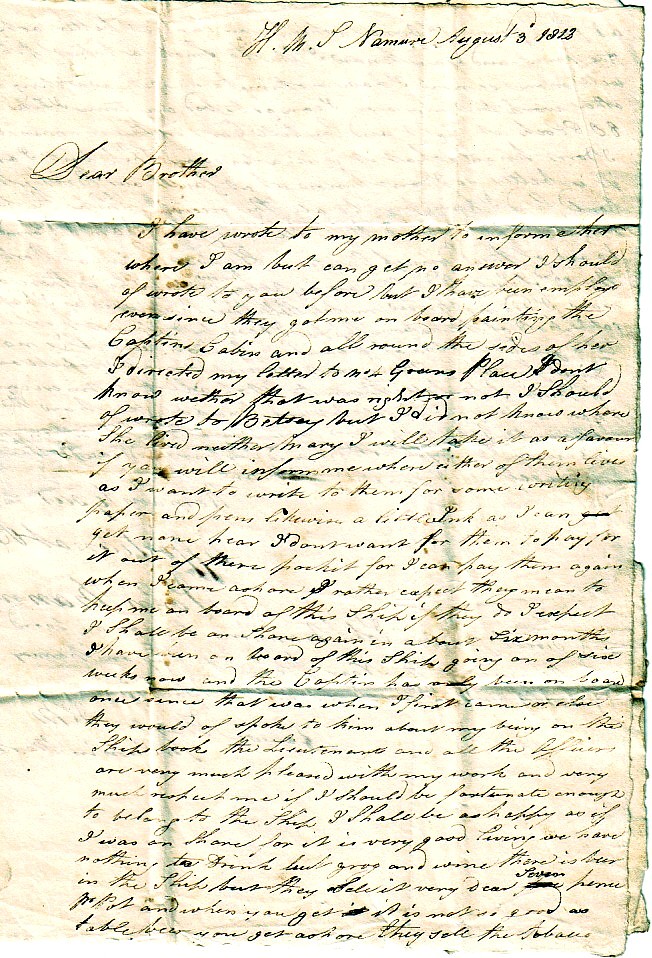 H. M. S Namure August 3d 1813
Dear Brother
I have wrote to my mother to inform her
where I am but can get no answer I should
of wrote to you before but I have been employd
ever since they got me on board painting the
Captins Cabin and all round the sides of her
I directed my letter to No 4 Place I dont
know wether that was right or not I Should
of wrote to Betsey but I did not know where
She lived neither Mary I will take it as a favour
if you will inform me where either of them lives
as I want to write to them for some writing
paper and pens likewise a little Ink as I can get
get none hear I dont want for them to pay for
it out of there pocket for I can pay them again
when I came ashore I rather expect they mean to
keep me on board of this Ship if they do I expect
I Shall be on Shore again in about six months
I have been on board of this Ship going on of six
weeks now and the Captin has only been on board
once since that was when I first came or else
they would of spoke to him about my being on the
Ships books the Lieutenants and all the Officers
are very much pleased with my work and very
much respect me if I should be fortunate enough
to belong to the Ship I Shall be as happy as if
I was on Shore for it is very good living we have
nothing to Drink but grog and wine there is beer
in the Ship but they Sele it very dear Seven pence
pr Pot and when you get it is not so good as
table beer you get ashore they sell the tobacco